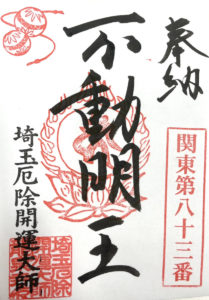 奉納
関東第八十三番
不動明王
埼玉厄除開運大師
埼玉厄除
開運大師